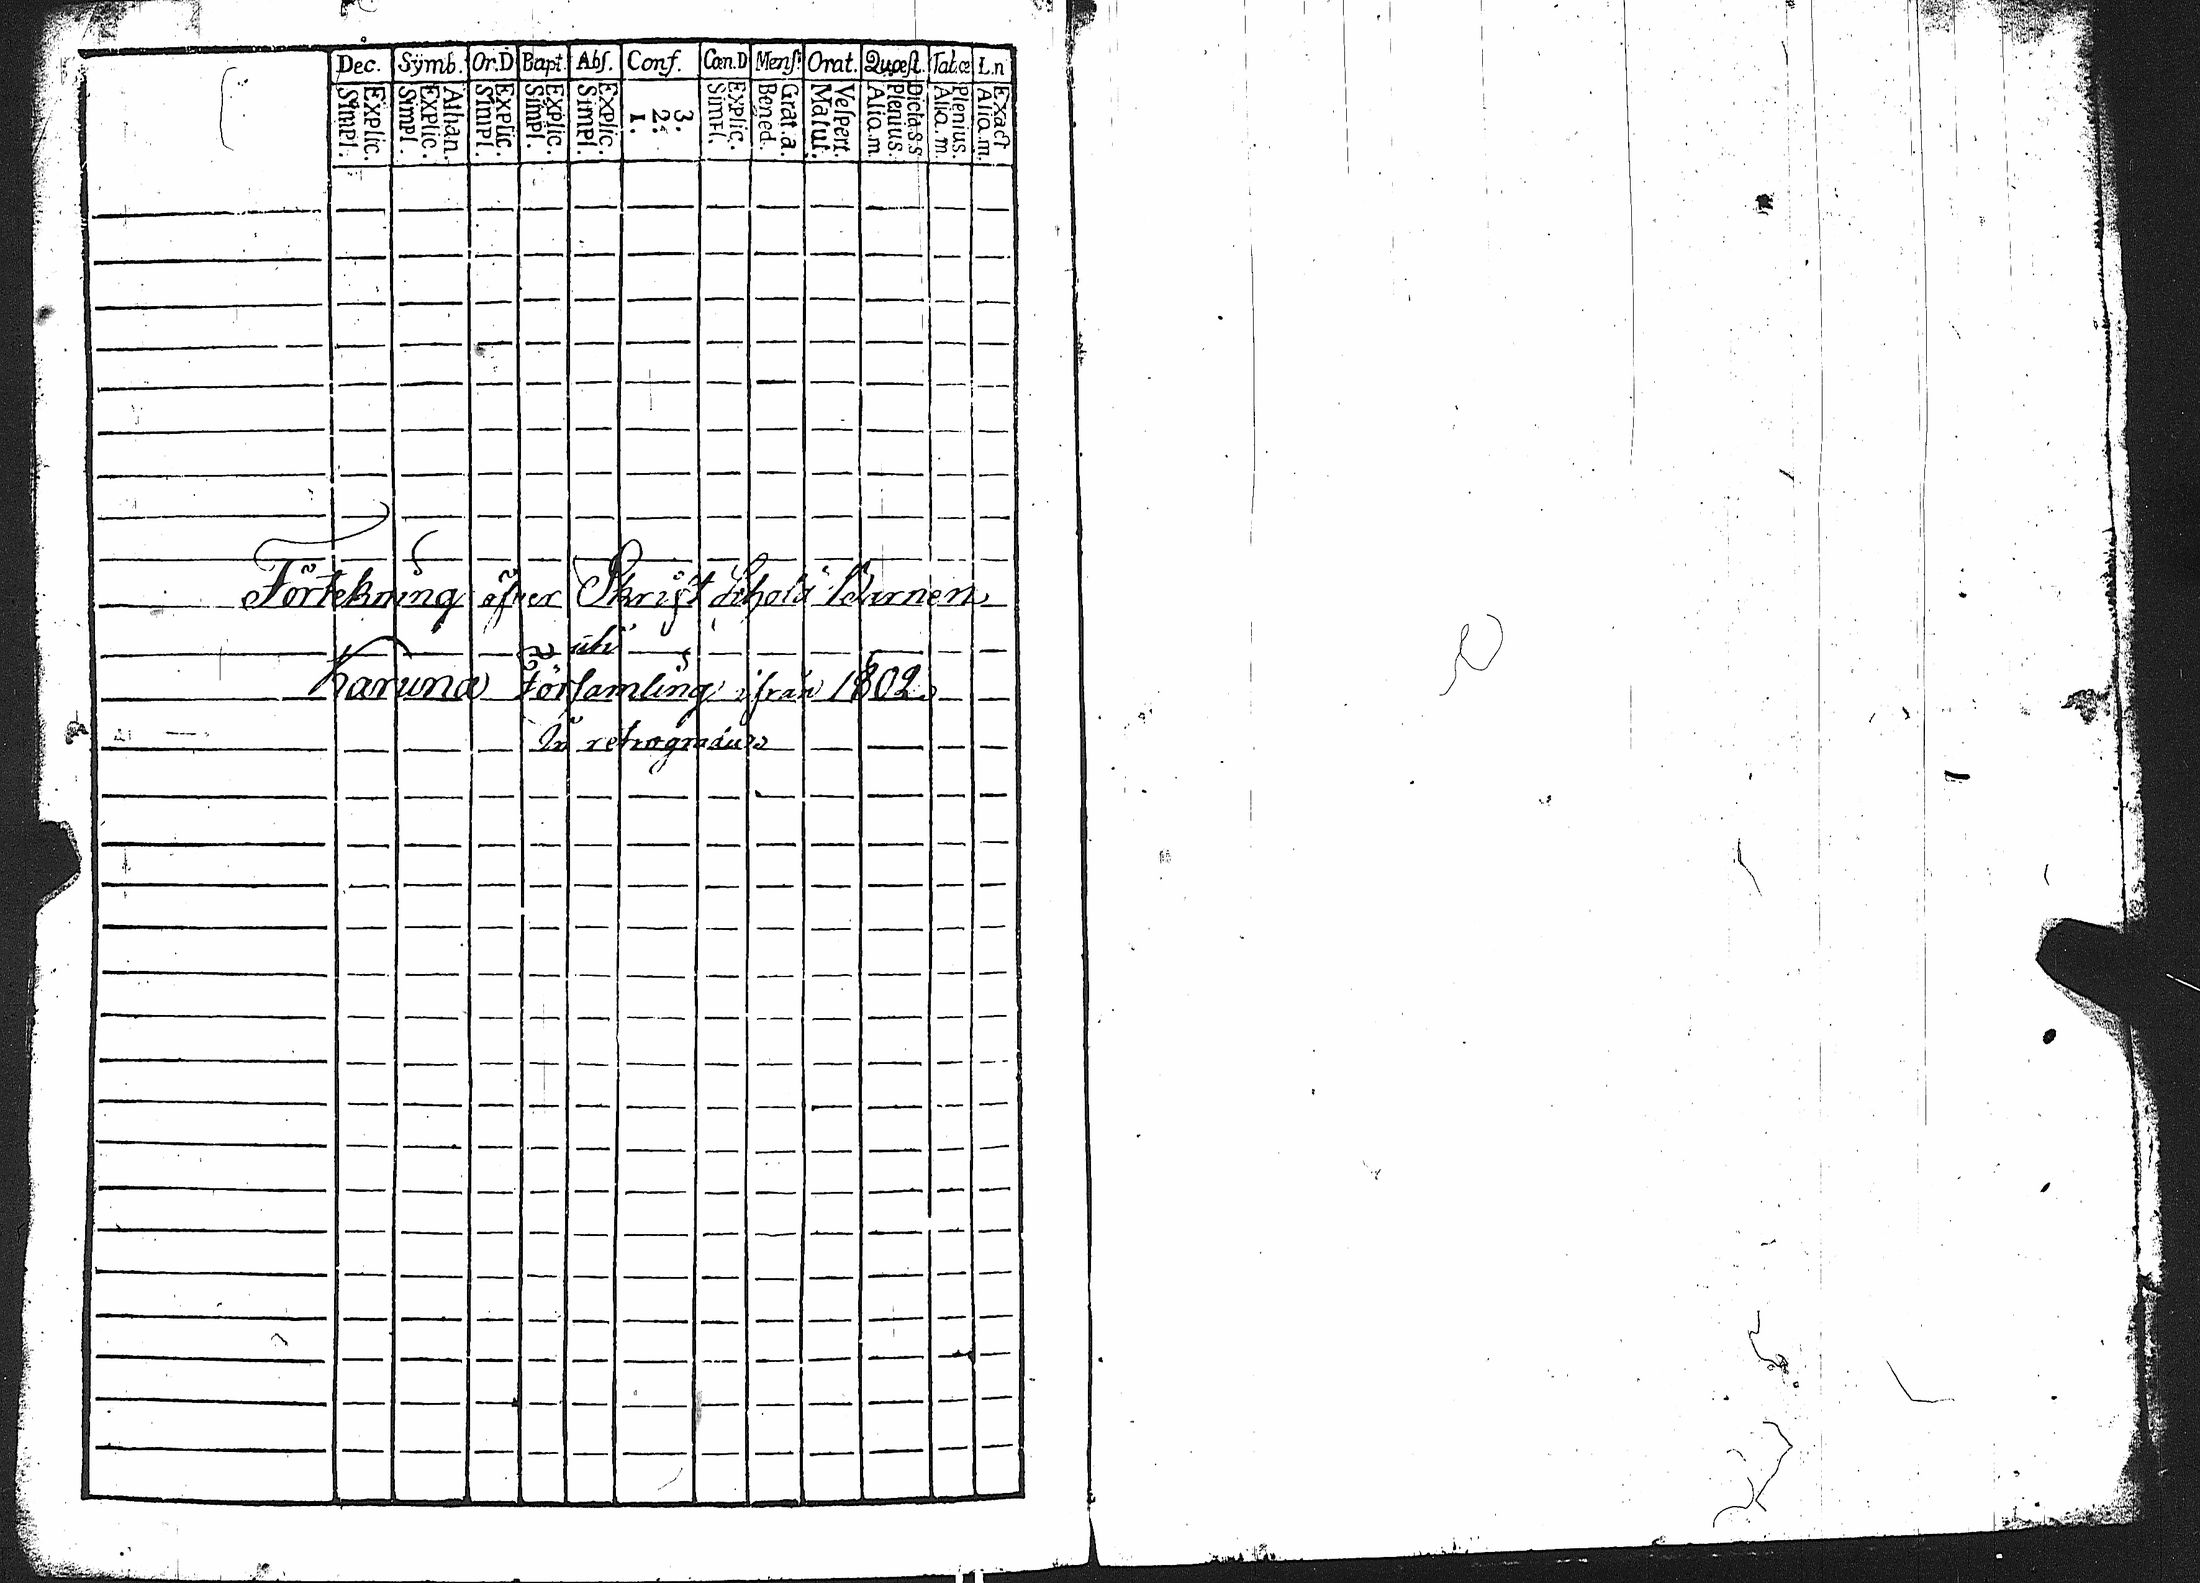 Dec. Sÿmb. Or.D Bapt. Abſ. Conf. Cœn.D Menſ. Orat. Quæſt. Tab.œ L.n
Explic. Simpl. Athan. Explic. Simpl. Explic. Simpl. Explic. Simpl. Explic. Simpl. 3. 2. 1. Explic. Simpl. Grat.a. Bened. Veſpert. Matut. Dicta.s.s Plenius. Alia.m. Plenius. Alia.m. Exact Alia.m.
Förtekning öfver Skrift Barnen
uti
Karuna Förſamling ifrån 1802
In retrogradus